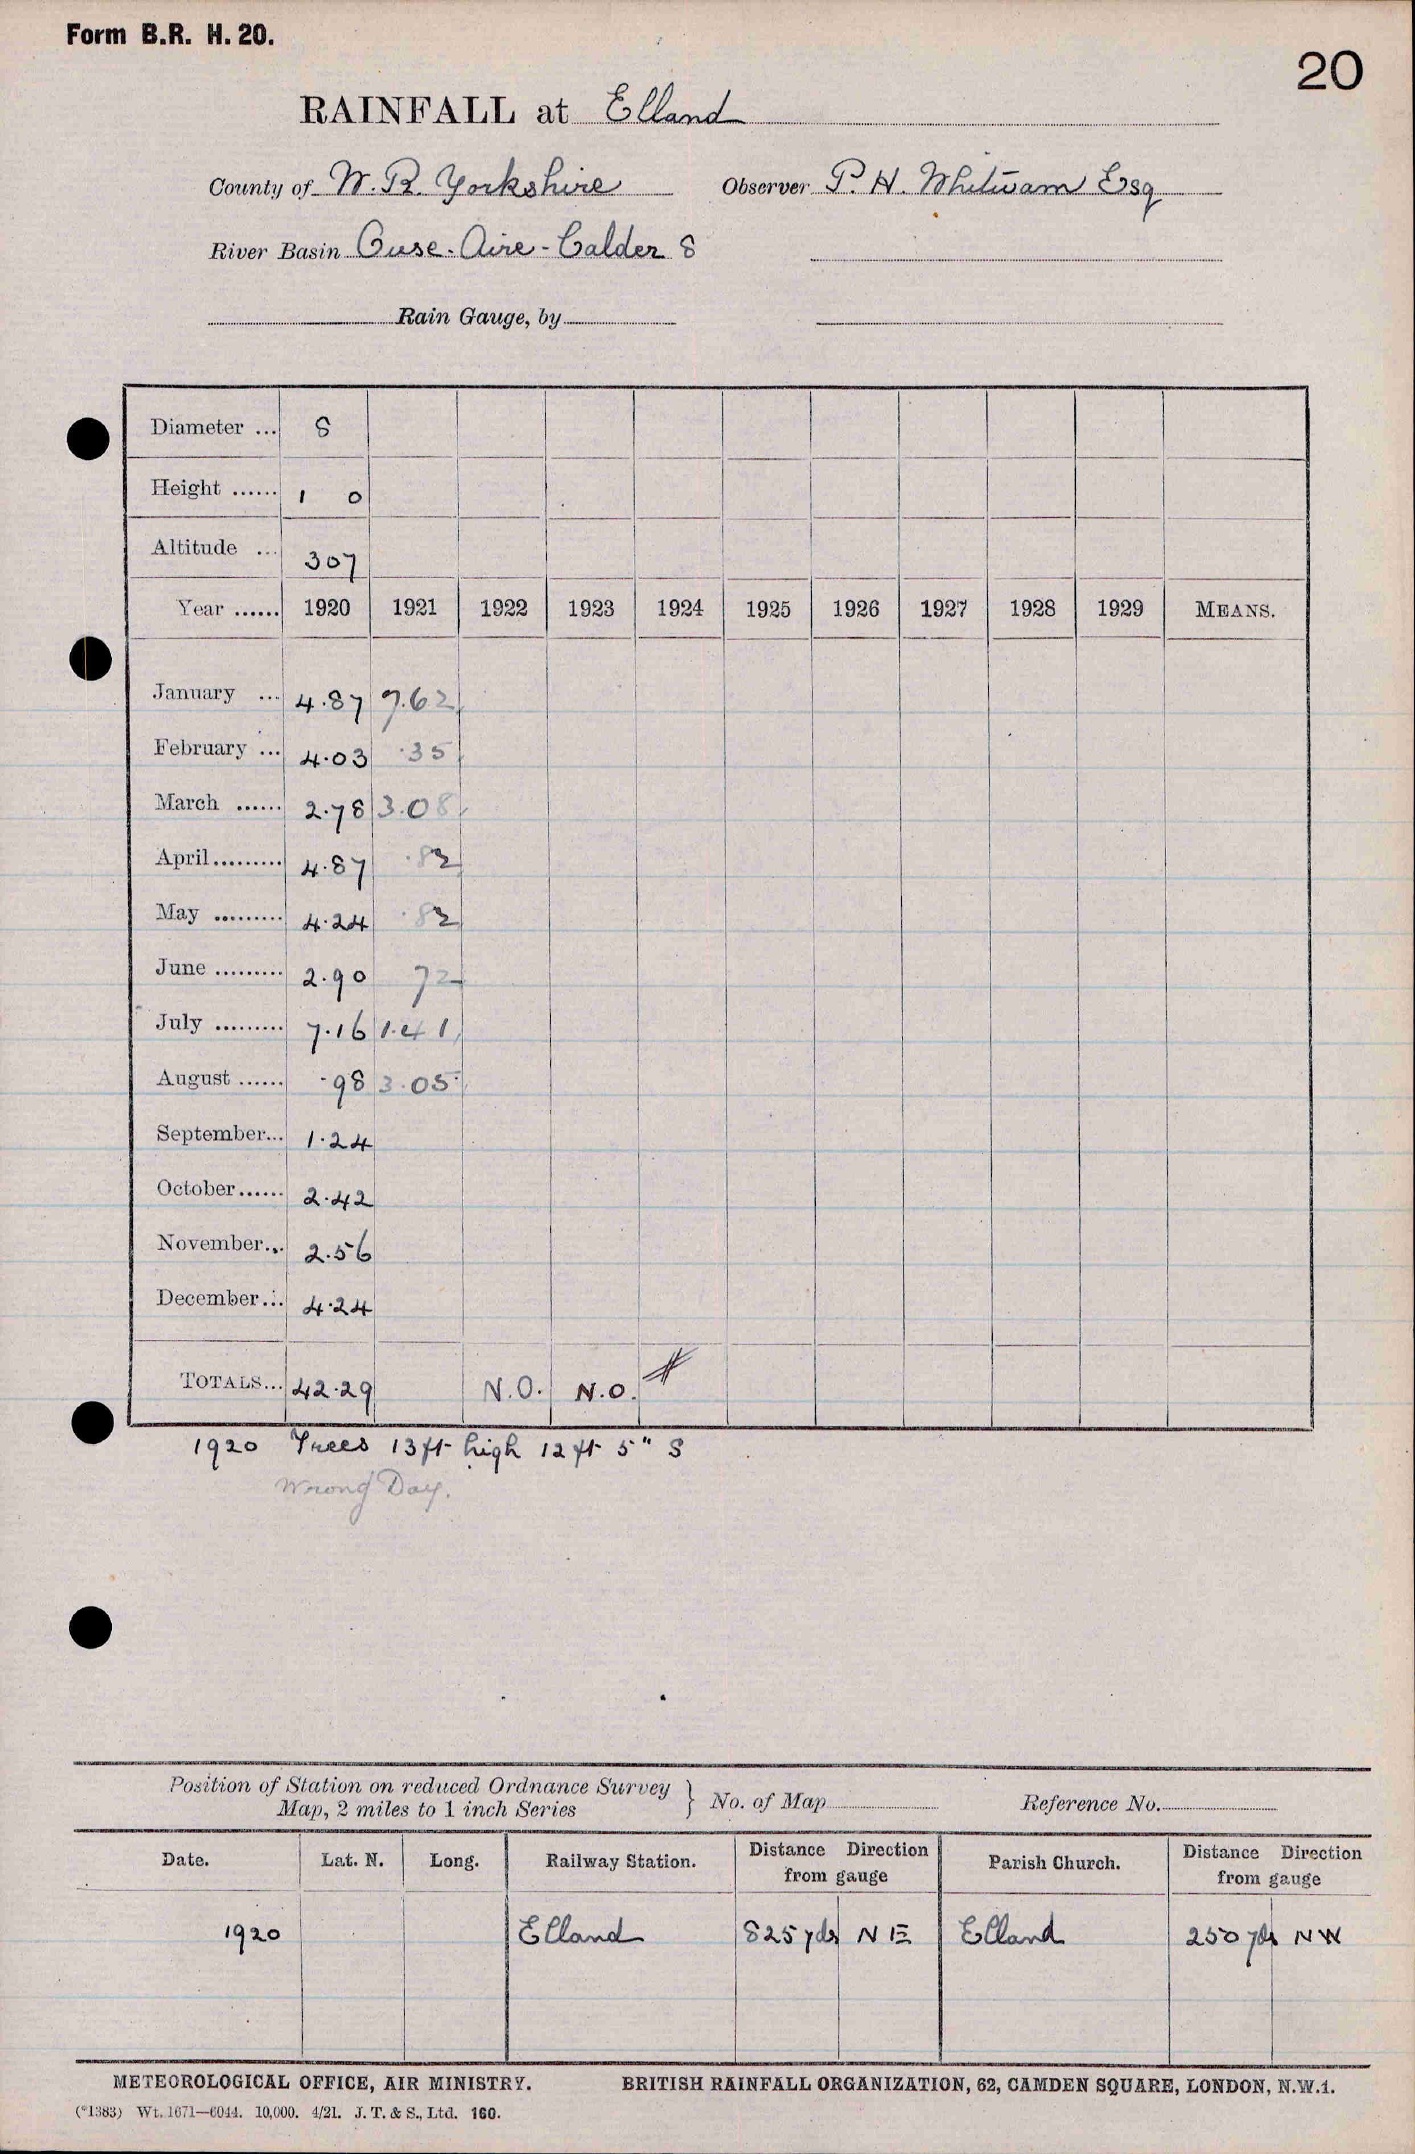 Form B.R. H. 20.
20
RAINFALL at Elland
County of W. R. Yorkshire Observer P. H. Whitwam Esq
River Basin Ouse - Aire - Calder 8
Rain Gauge, by
Diameter ... 8
Height ...... 1 0
Altitude ... 307
Year ...... 1920 1921 1922 1923 1924 1925 1926 1927 1928 1929 MEANS.
January ... 4.87 7.62
February ... 4.03 .35
March ...... 2.78 3.08
April......... 4.87 .82
May ......... 4.24 .82
June ......... 2.90 72
July ......... 7.16 1.41
August ...... .98 3.05
September... 1.24
October...... 2.42
November... 2.56
December... 4.24
TOTALS... 42.29 N.O. N.O.
1920 Trees 13 ft high 12 ft 5" S
Wrong Day.
Position of Station on reduced Ordnance Survey
Map, 2 miles to 1 inch Series } No. of Map Reference No.
Date. Lat. N. Long. Railway Station. Distance Direction from gauge Parish Church. Distance Direction from gauge
1920 Elland 825 yds N E Elland 250 yds N W
METEOROLOGICAL OFFICE, AIR MINISTRY. BRITISH RAINFALL ORGANIZATION, 62, CAMDEN SQUARE, LONDON, N.W.1.
(*1383) Wt. 1671—6044. 10,000. 4/21. J. T. & S., Ltd. 160.